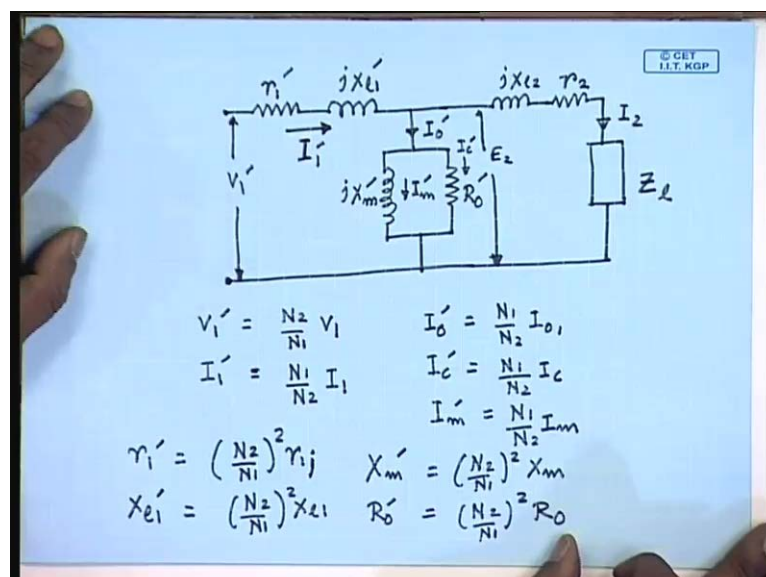 © CET
I.I.T. KGP
r₁′ jXₑ₁′ jXₑ₂ r₂
I₁′ I₀′ I₂
V₁′ jXₘ′ Iₘ′ Ic′ R₀′ E₂ Zₗ
V₁′ = N₂/N₁ V₁
I₀′ = N₁/N₂ I₀₁
I₁′ = N₁/N₂ I₁
Ic′ = N₁/N₂ Ic
Iₘ′ = N₁/N₂ Iₘ
r₁′ = (N₂/N₁)² r₁;
Xₘ′ = (N₂/N₁)² Xₘ
Xₑ₁′ = (N₂/N₁)² Xₑ₁
R₀′ = (N₂/N₁)² R₀